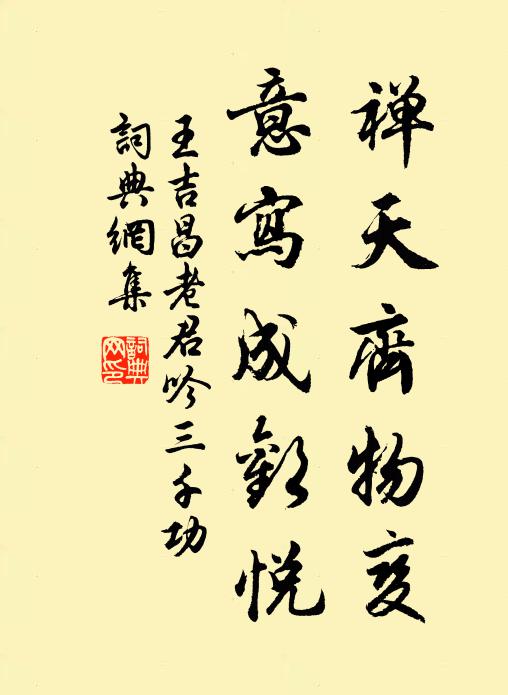 禅天齊物变
意寫成歡悅
王吉昌老君吟三千功
詞典網集
詞典网印